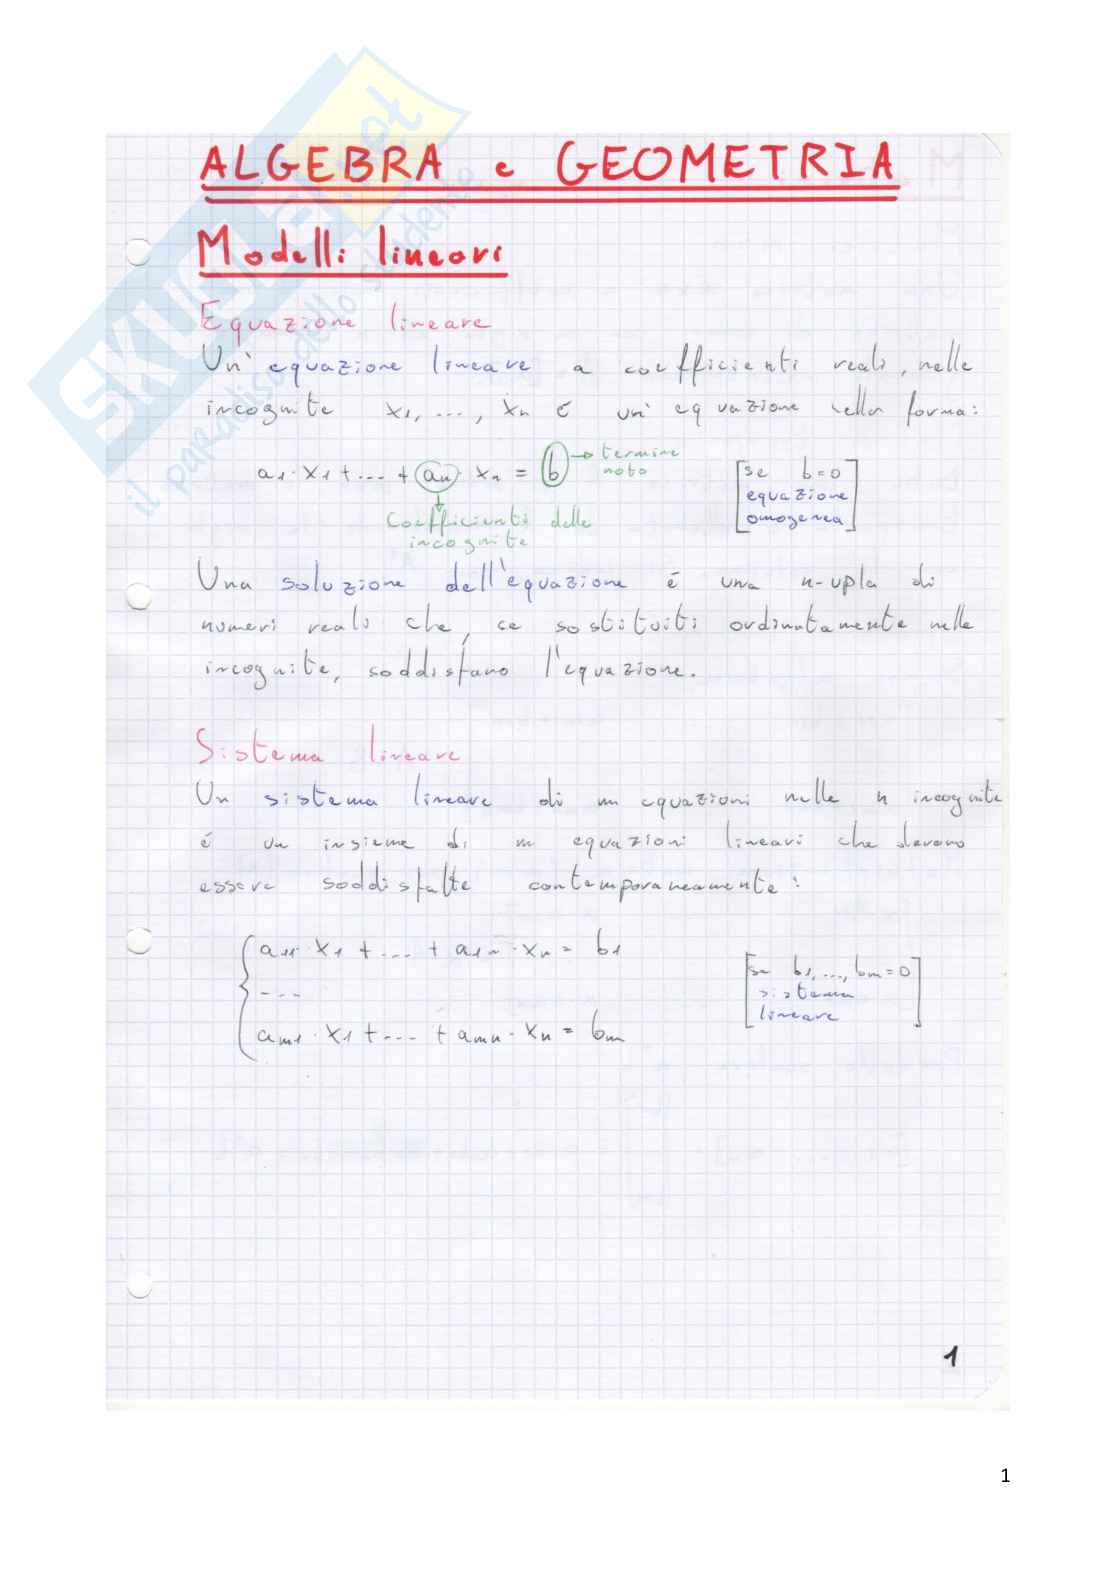 ALGEBRA e GEOMETRIA
Modelli lineari
Equazione lineare
Un' equazione lineare a coefficienti reali, nelle
incognite x1, ..., xn é un' equazione nella forma:
a1·x1 + ... + an·xn = b → termine
noto
se b=0
equazione
omogenea
Coefficienti delle
incognite
Una soluzione dell'equazione é una n-upla di
numeri reali che, se sostituiti ordinatamente nelle
incognite, soddisfano l'equazione.
Sistema lineare
Un sistema lineare di m equazioni nelle n incognite
é un insieme di m equazioni lineari che devono
essere soddisfatte contemporaneamente:
a11·x1 + ... + a1n·xn = b1
...
am1·x1 + ... + amn·xn = bm
se b1, ..., bm = 0
sistema
lineare
1
1
SKUOLA.net
il paradiso dello studente